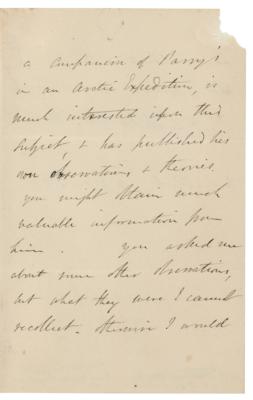 a companion of Parry's
in an Arctic Expedition, is
much interested upon this
subject, & has published his
own observations & theories.
you might obtain much
valuable information from
him. you asked me
about some other observations,
but what they were I cannot
recollect. Otherwise I would